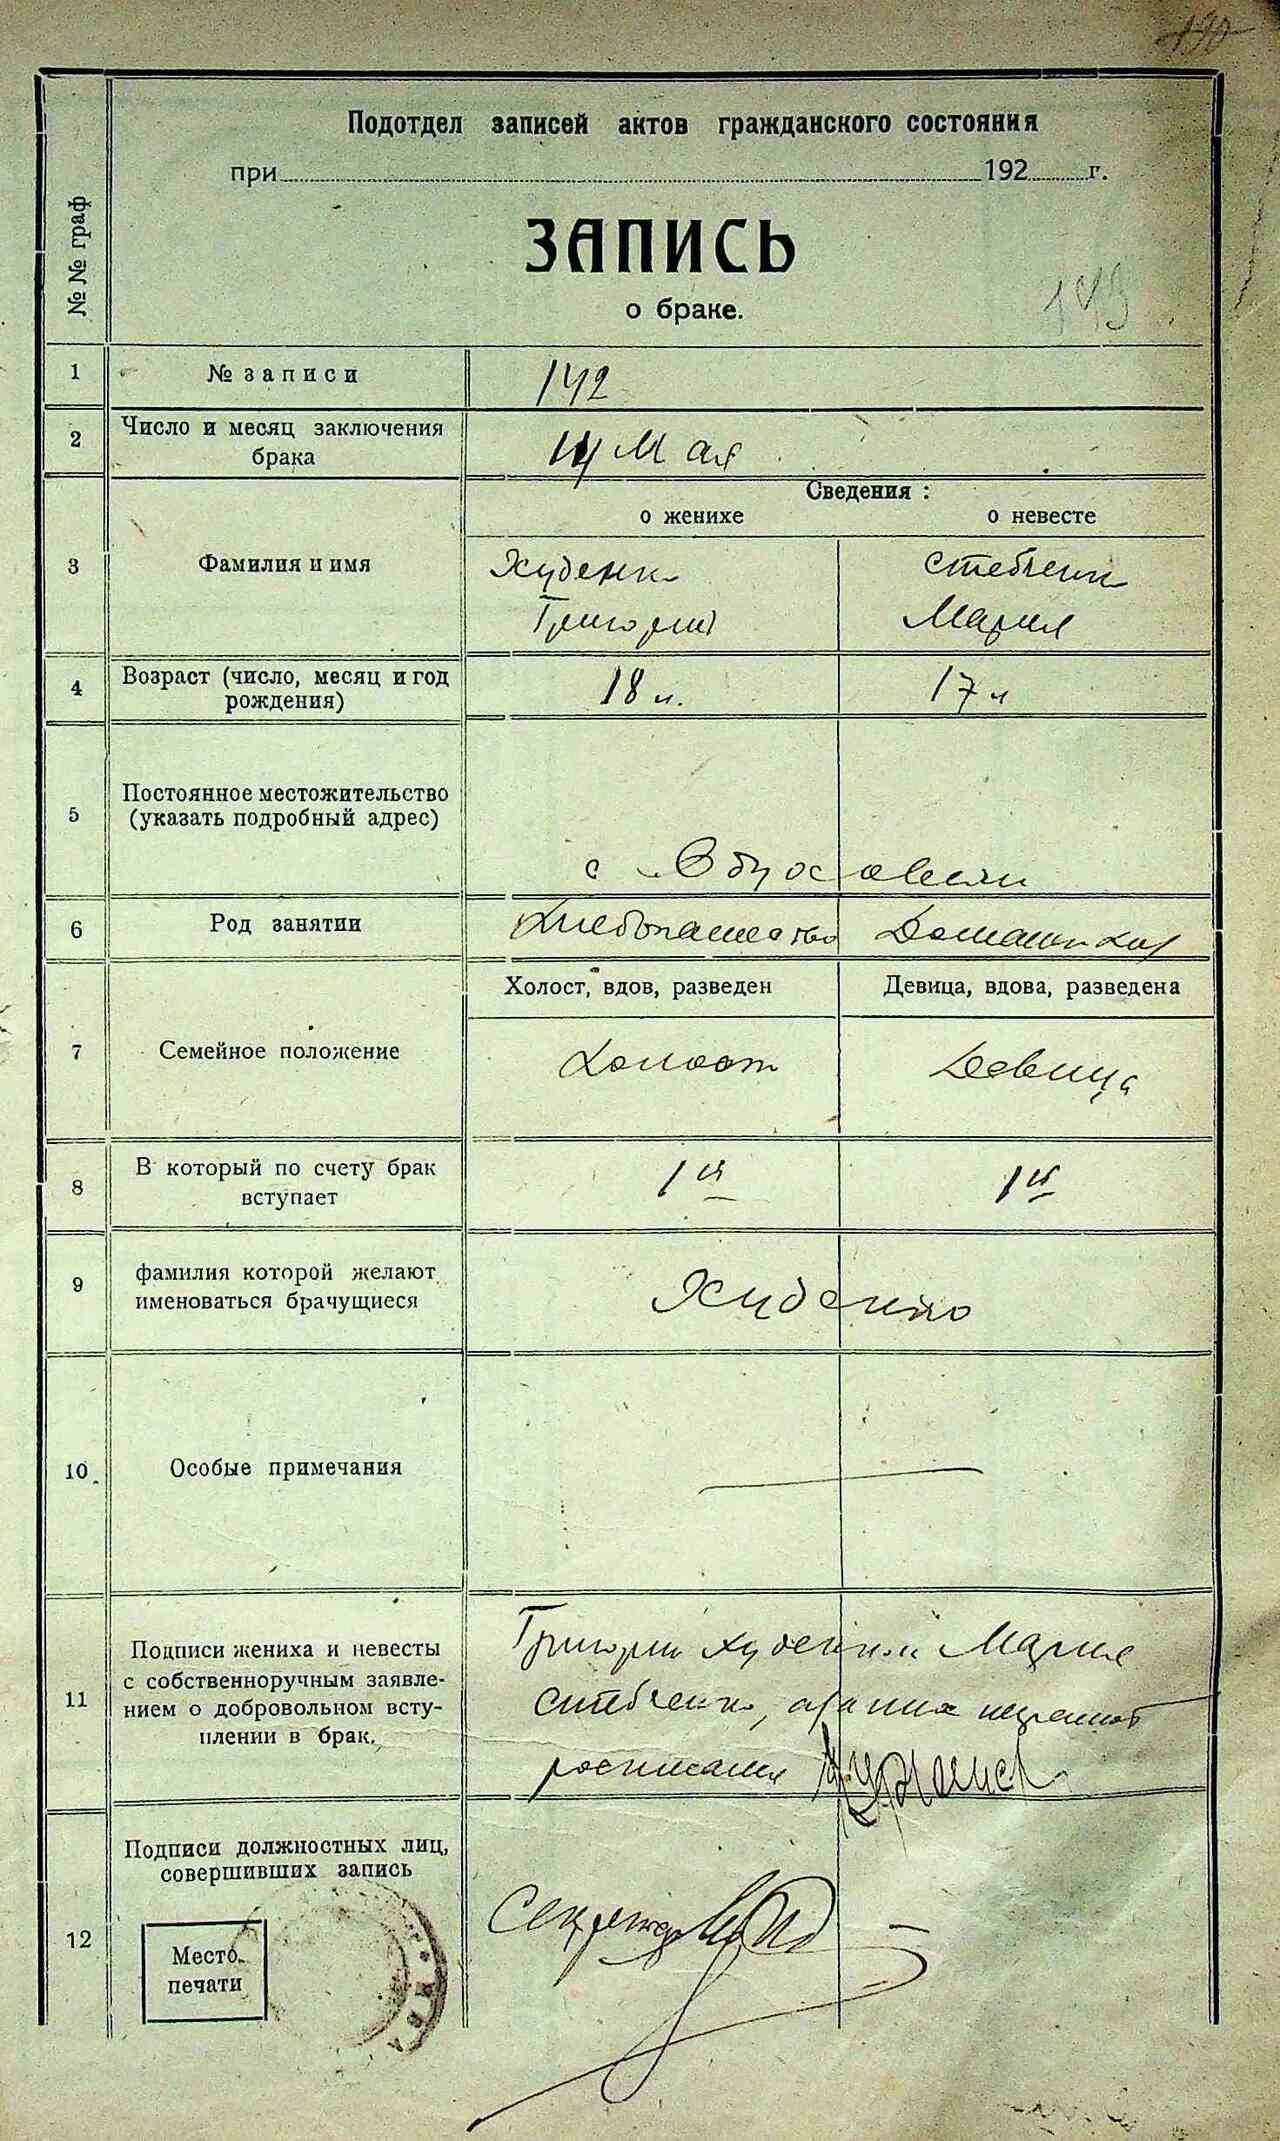 190
Подотдел записей актов гражданского состояния
при 192 г.
№ № граф
ЗАПИСЬ
о браке.
143
1 № записи 142
2 Число и месяц заключения
брака
14 Мая
Сведения :
о женихе о невесте
3 Фамилия и имя
Худенко Стебленко
Григорий Мария
4 Возраст (число, месяц и год
рождения)
18 л. 17 л
5 Постоянное местожительство
(указать подробный адрес)
с
6 Род занятии Хлебопашество Домашняя
Холост, вдов, разведен Девица, вдова, разведена
7 Семейное положение Холост Девица
8 В который по счету брак
вступает
1й 1й
9 фамилия которой желают
именоваться брачущиеся
Худенко
10 Особые примечания
11 Подписи жениха и невесты
с собственноручным заявле-
нием о добровольном всту-
плении в брак.
Григорий Худенко и Мария
Стебленко, а за них неграмот
росписался
12 Подписи должностных лиц,
совершивших запись
Место
печати
Секретарь